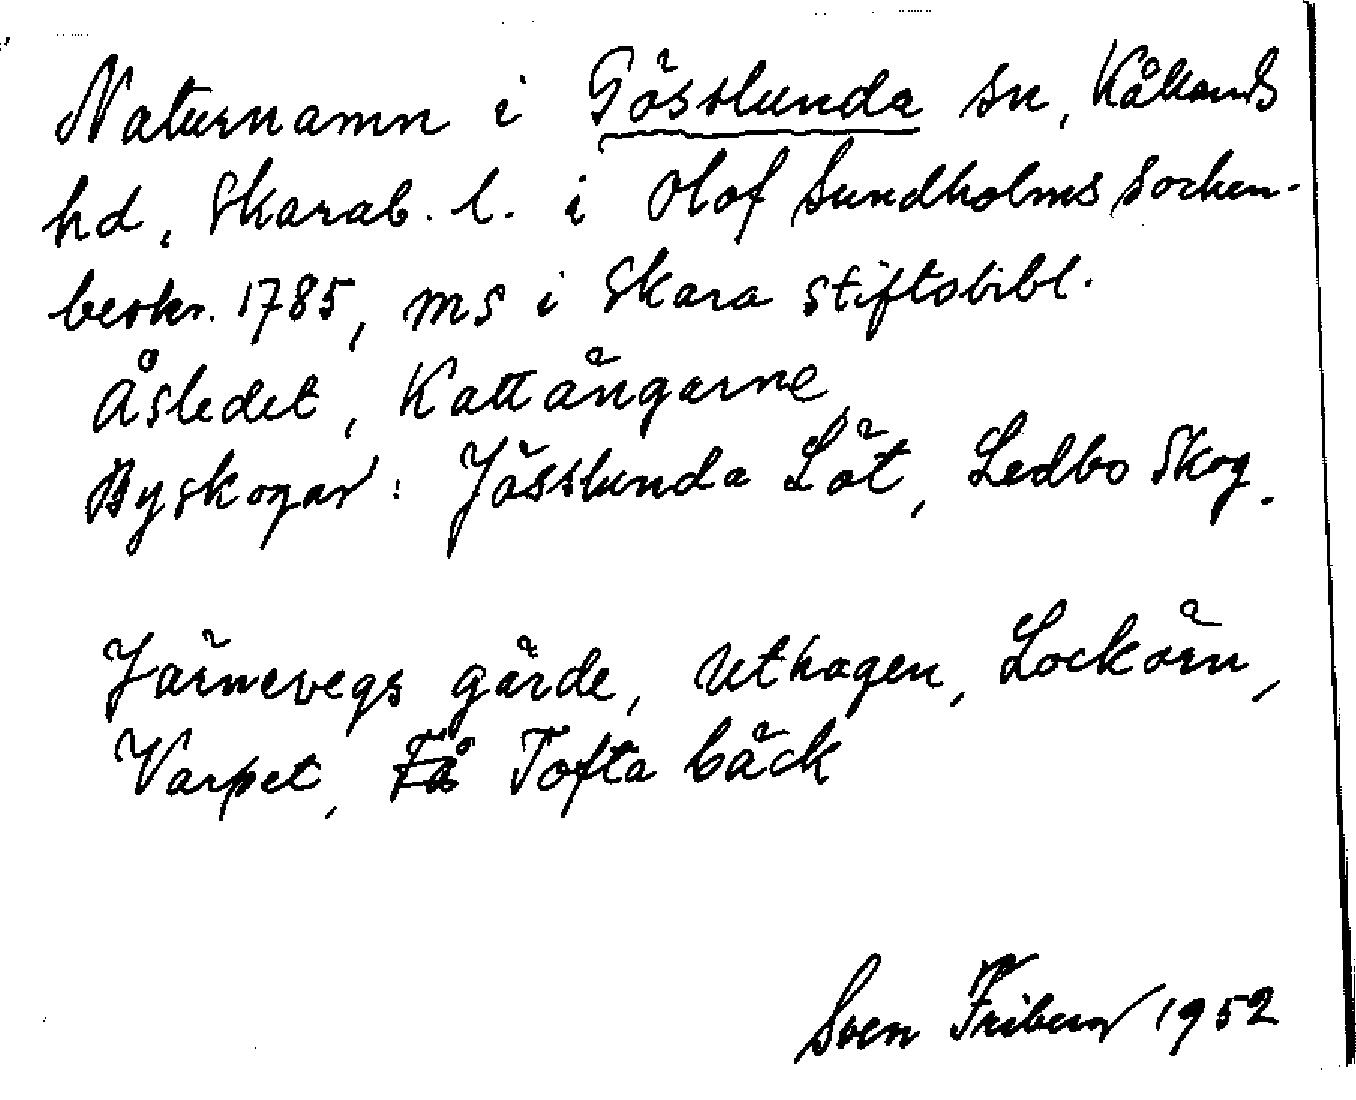 Naturnamn i Gösslunda sn, Kållands
hd, Skarab. l. i Olof Sundholms socken-
beskr. 1785, ms i Skara stiftsbibl.
Åsledet, Kattängarne
Byskogar: Jösslunda Löt, Ledbo Skog.
Järnevegs gärde, Uthagen, Lockörn,
Varpet, Få Tofta bäck
Sven Friberg 1952